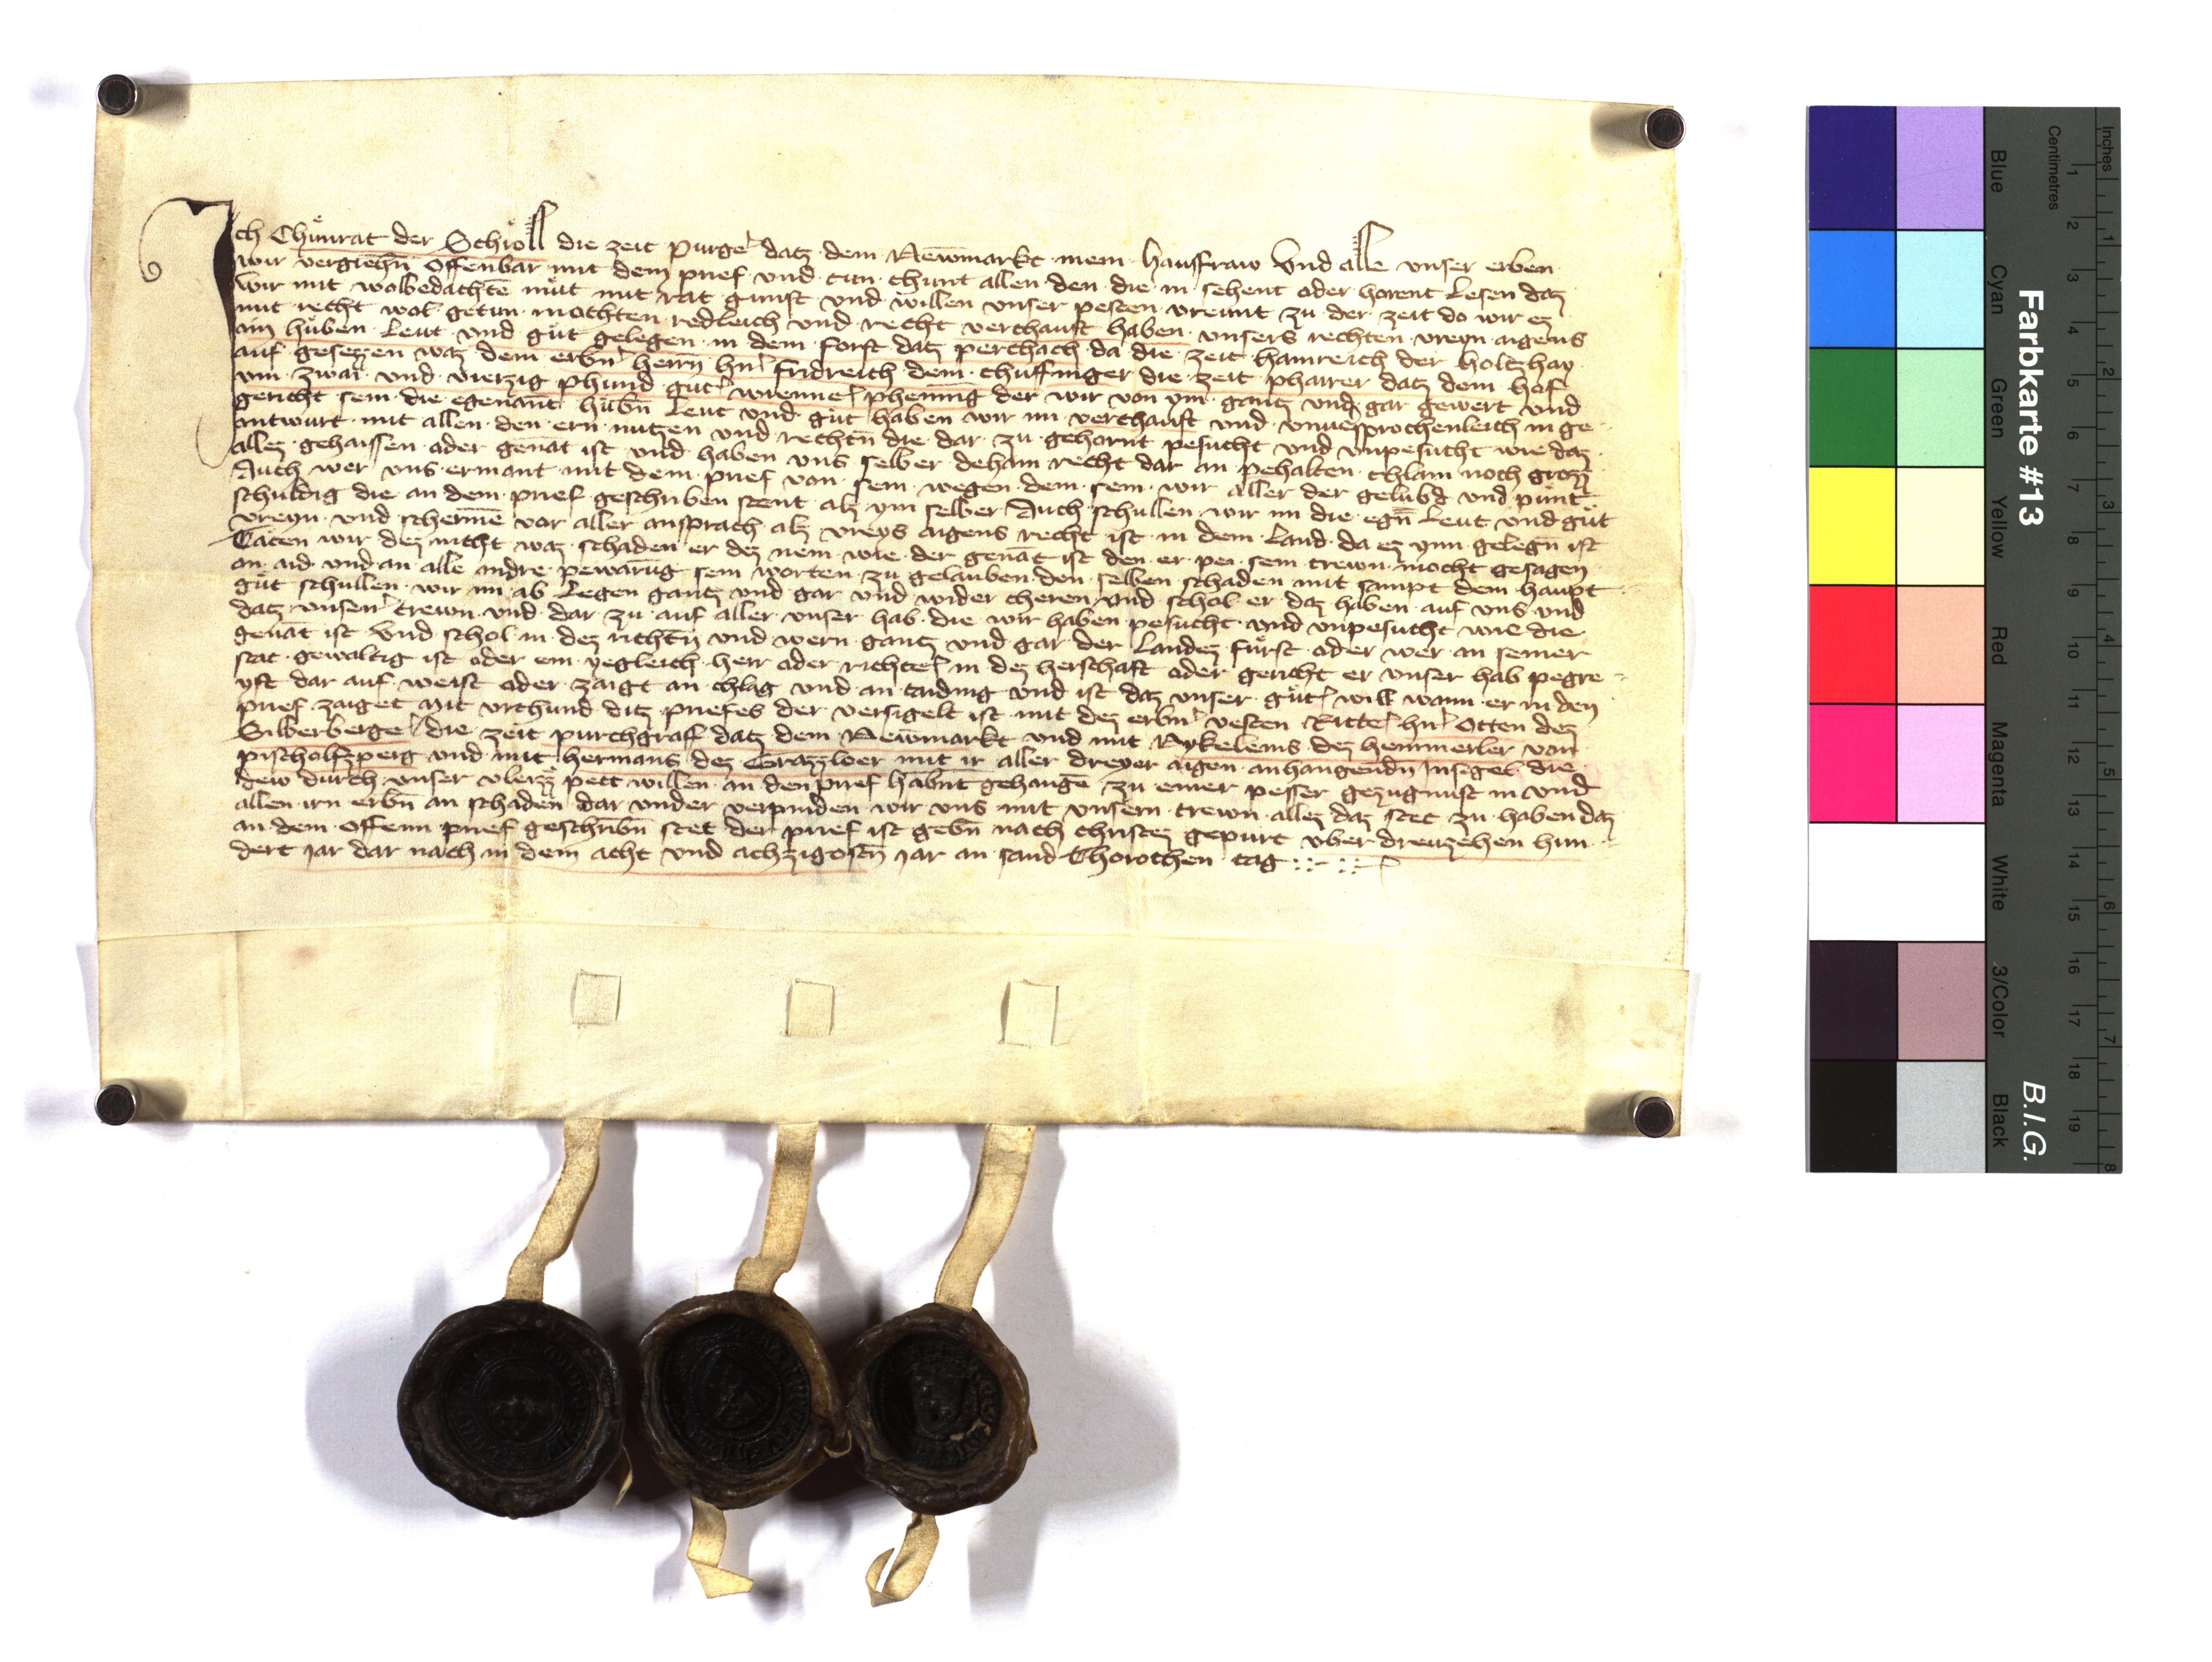 Ich Chunrat der Schröll die zeit purger datz dem Newmarkt mein hausfraw Vnd alle vnser erben
wir vergiechn̄ offenbar mit dem prief vnd tun chunt allen den die in sehent oder horent Lesen daz
wir mit wolbedachtē mut mit rat gunst vnd willen vnser pesten vreunt zu der zeit do wir ez
mit recht wol getun mochten redleich vnd recht verchauft haben vnsers rechten vreyn aigens
ain huben Leut vnd gut gelegen in dem forst datz perchach da die zeit hainreich der holtzhay
auf gesezzen waz dem erbn̄ herrn hn̄ Fridreich dem chuffinger die zeit pharrer datz dem hof
vm zwai vnd vierzig phund guter wienner phenning der wir von ym gantz vnd gar gewert vnd
gericht sein die egenant hubn̄ Leut vnd gut haben wir im verchauft vnd vnuersprochenleich in ge
antwurt mit allen den ern nutzen vnd rechtn̄ die dar zu gehornt pesucht vnd vnpesucht wie daz
allez gehaissen oder genāt ist vnd haben vns selber dehain recht dar an pehalten chlain noch grozz
Auch wer vns ermant mit dem prief von sein wegen dem sein wir aller der gelubd vnd punt
schuldig die an dem prief geschriben stent alz ym selber Auch schullen wir im die egn̄ Leut vnd gut
vreyn vnd schermē vor aller ansprach alz vreys aigens recht ist in dem Land da ez ynn gelegn̄ ist
Täten wir dez nicht waz schaden er dez nem wie der genāt ist den er pei sein trewn mocht gesagen
an aid vnd an alle andre pewārūg sein worten zu gelauben den selben schaden mit sampt dem haupt
gut schullen wir im ab Legen gantz vnd gar vnd wider cheren vnd schol er daz haben auf vns vnd
datz vnsern trewn vnd dar zu auf aller vnser hab die wir haben pesucht vnd vnpesucht wie die
genāt ist Vnd schol in dez richtn̄ vnd wern gantz vnd gar der Landez furst oder wer an seiner
stat gewaltig ist oder ein yegleich herr oder richter in dez herschaft oder gericht er vnser hab pegre
yft dar auf weist oder zaigt an chlag vnd an taiding vnd ist daz vnser guter will wann er in den
prief zaiget Mit vrchund ditz priefes der versigelt ist mit dez erbn̄ vesten Ritter hn̄ Otten dez
Silberberger die zeit purchgraff datz dem Newmarkt vnd mit Nykeleins dez hemmerler von
pischolfzperg vnd mit hermans dez Grazzloer mit ir aller dreyer aigen anhangendn̄ Insigel die
dew durch vnser vleizz pett willen an den prief habnt gehangē zu einer pesser gezugnust in vnd
allen irn erbn̄ an schaden dar vnder verpinden wir vns mit vnsern trewn allez daz stet zu haben daz
an dem offenn prief geschribn̄ stet der prief ist gebn̄ nach christez gepurt vber dreuzehen hun
dert jar dar nach in dem acht vnd achzigostn̄ jar an sand Thorothen tag
Farbkarte #13
B.I.G.
Inches
Centimetres
1 2 3 4 5 6 7 8
1 2 3 4 5 6 7 8 9 10 11 12 13 14 15 16 17 18 19
Blue
Cyan
Green
Yellow
Red
Magenta
White
3/Color
Black